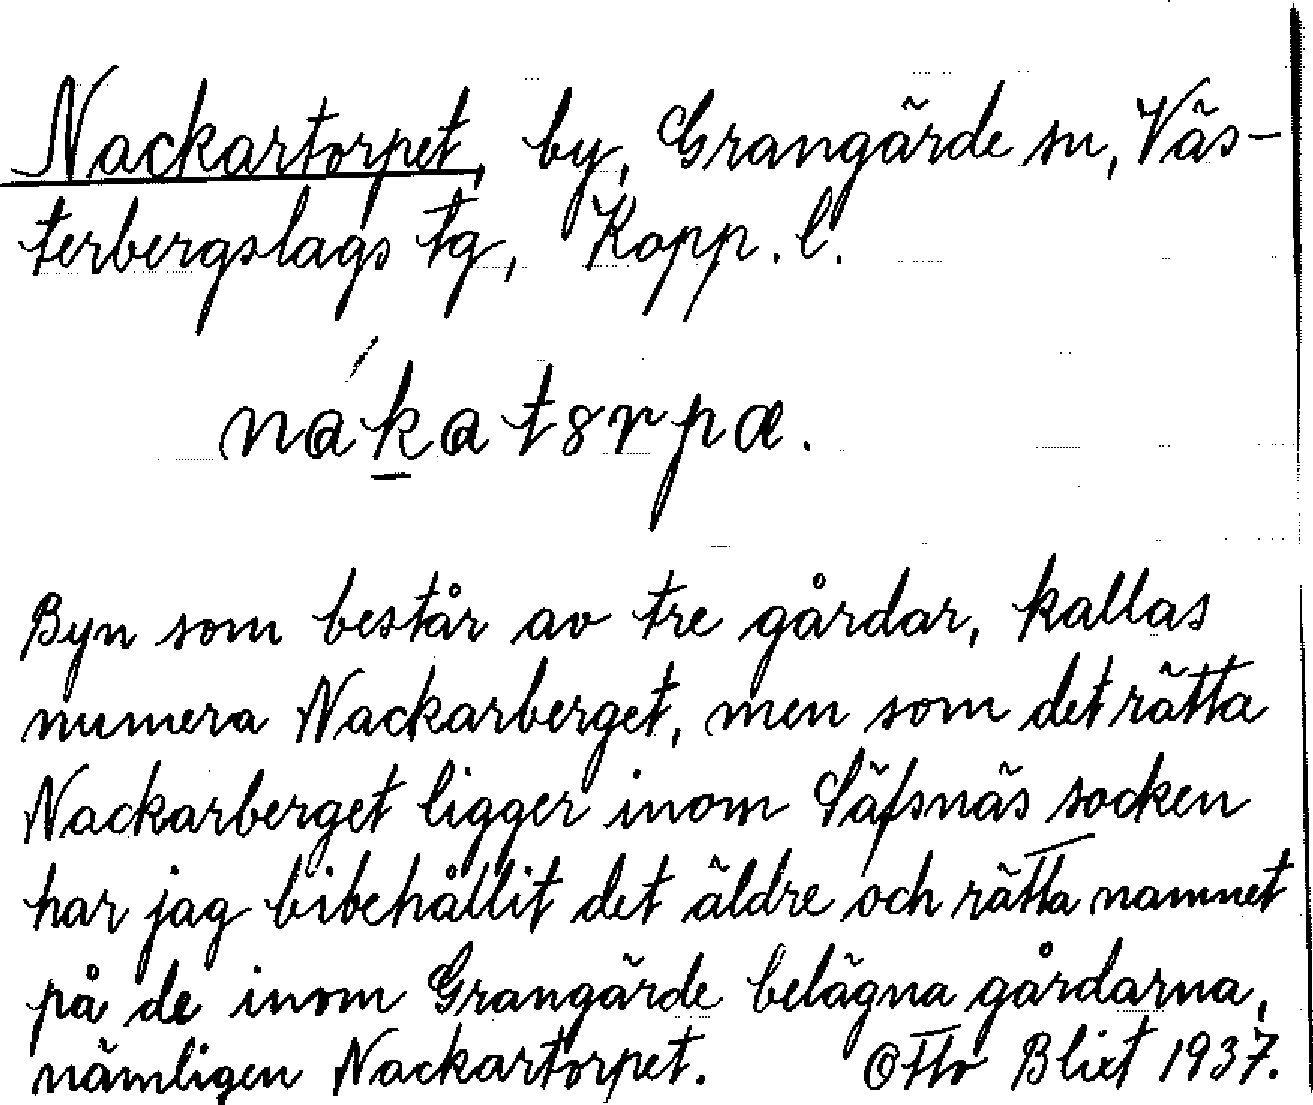 Nackartorpet, by, Grangärde sn, Väs-
terbergslags tg, Kopp. l.
nákatorpæ.
Byn som består av tre gårdar, kallas
numera Nackarberget, men som det rätta
Nackarberget ligger inom Säfsnäs socken
har jag bibehållit det äldre och rätta namnet
på de inom Grangärde belägna gårdarna,
nämligen Nackartorpet. Otto Blixt 1937.